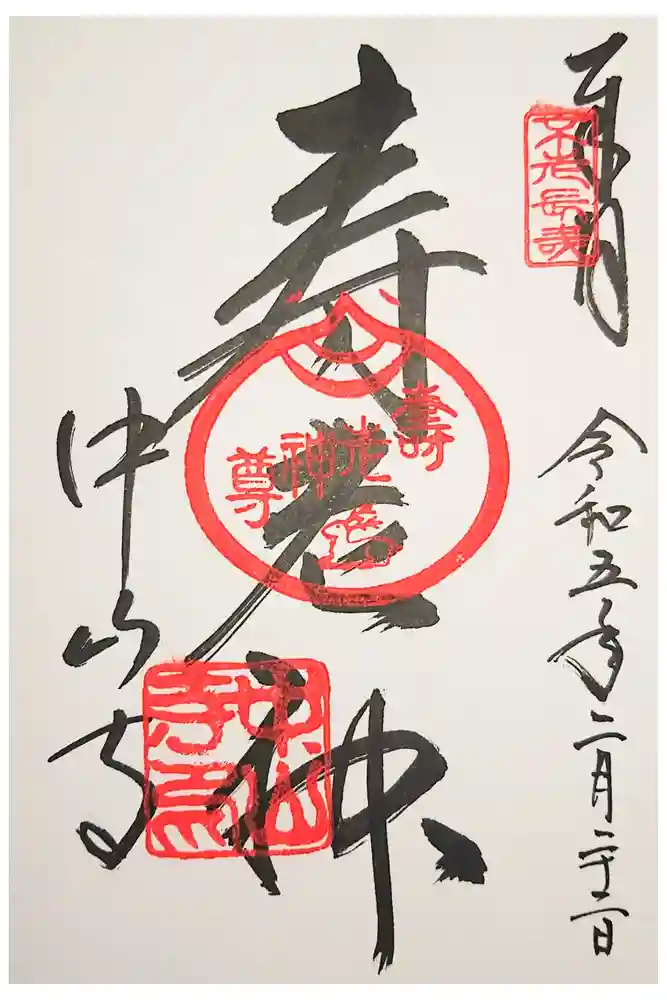 不老長寿
令和五年二月二十二日
寿老神
壽老神尊
中山寺
中山寺印